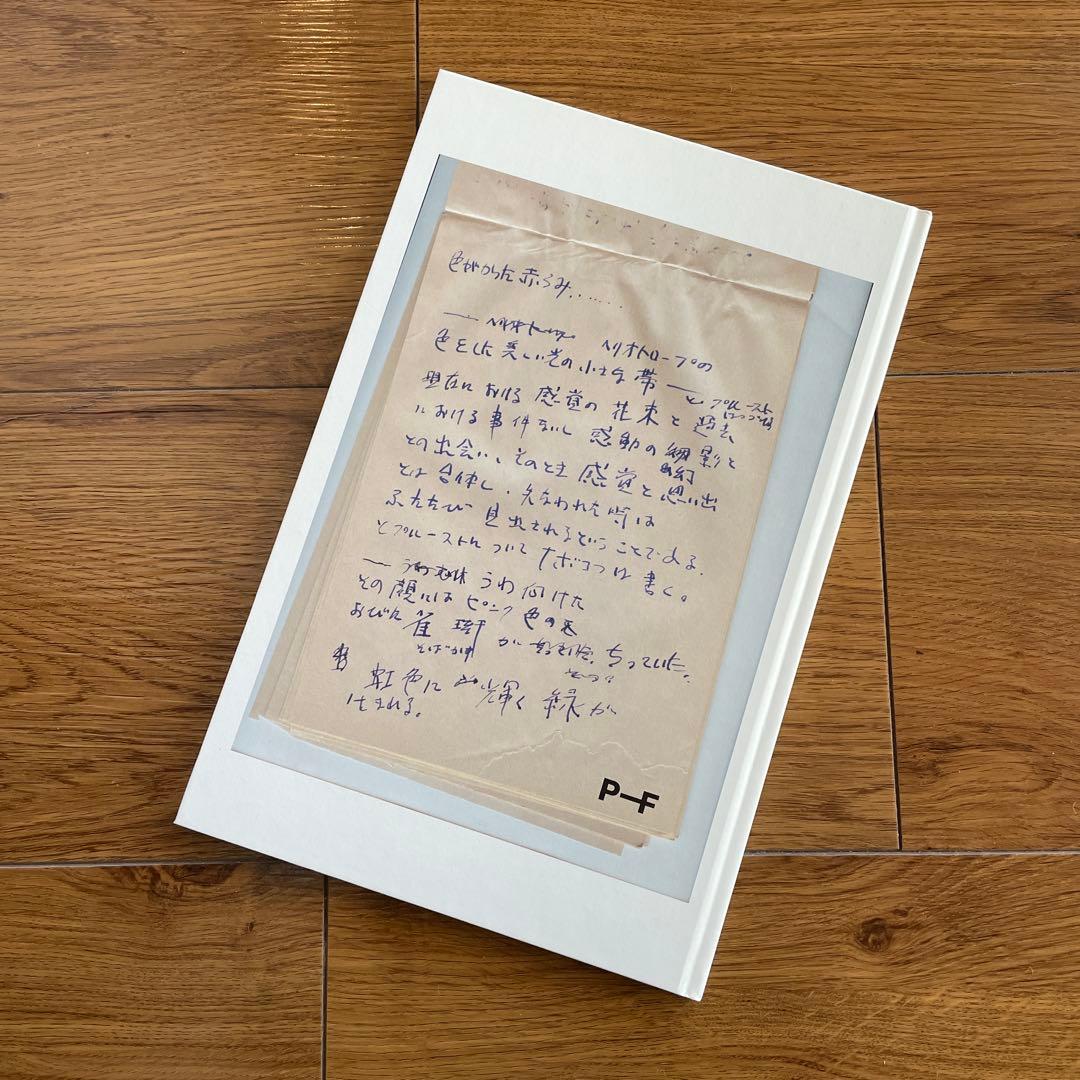 色がかった赤らみ.......
ヘリオトロープの
色をした美しい光の小さな帯 — と プルースト
現在における感覚の花束と過去
における事件ないし感動の幻影と
の出会い、そのとき感覚と思い出
とは合体し、失なわれた時は
ふたたび見出されるということである.
とプルーストについてナボコフは書く。
— うわ向けた
その顔にはピンク色の
おびた雀斑が ちっていた.
そばかす
虹色に輝く緑が
はまれる。
P—F